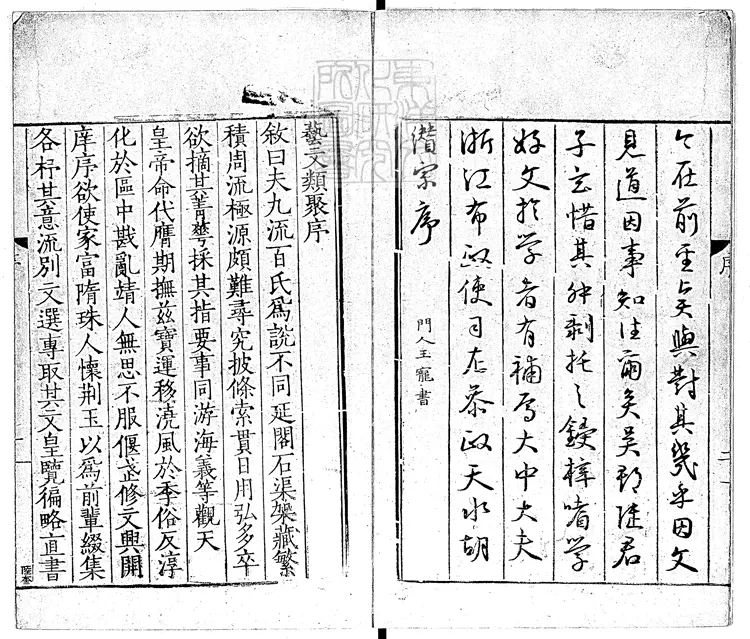 在前
與對其幾乎因文
見道因事知往爾矣吳郡陸君
子玄惜其舛剥托之鋟梓嗜學
好文於學者有補焉大中大夫
浙江布政使司左參政天水胡
纘宗序
門人王寵書
序
二
藝文類聚序
敘曰夫九流百氏爲説不同延閣石渠架藏繁
積周流極源頗難尋究披條索貫日用弘多卒
欲摘其菁華採其指要事同游海義等觀天
皇帝命代膺期撫茲寶運移澆風於季俗反淳
化於區中戡亂靖人無思不服偃武修文興開
庠序欲使家富隋珠人懷荆玉以爲前輩綴集
各杼其意流別文選專取其文皇覽徧略直書
序
一